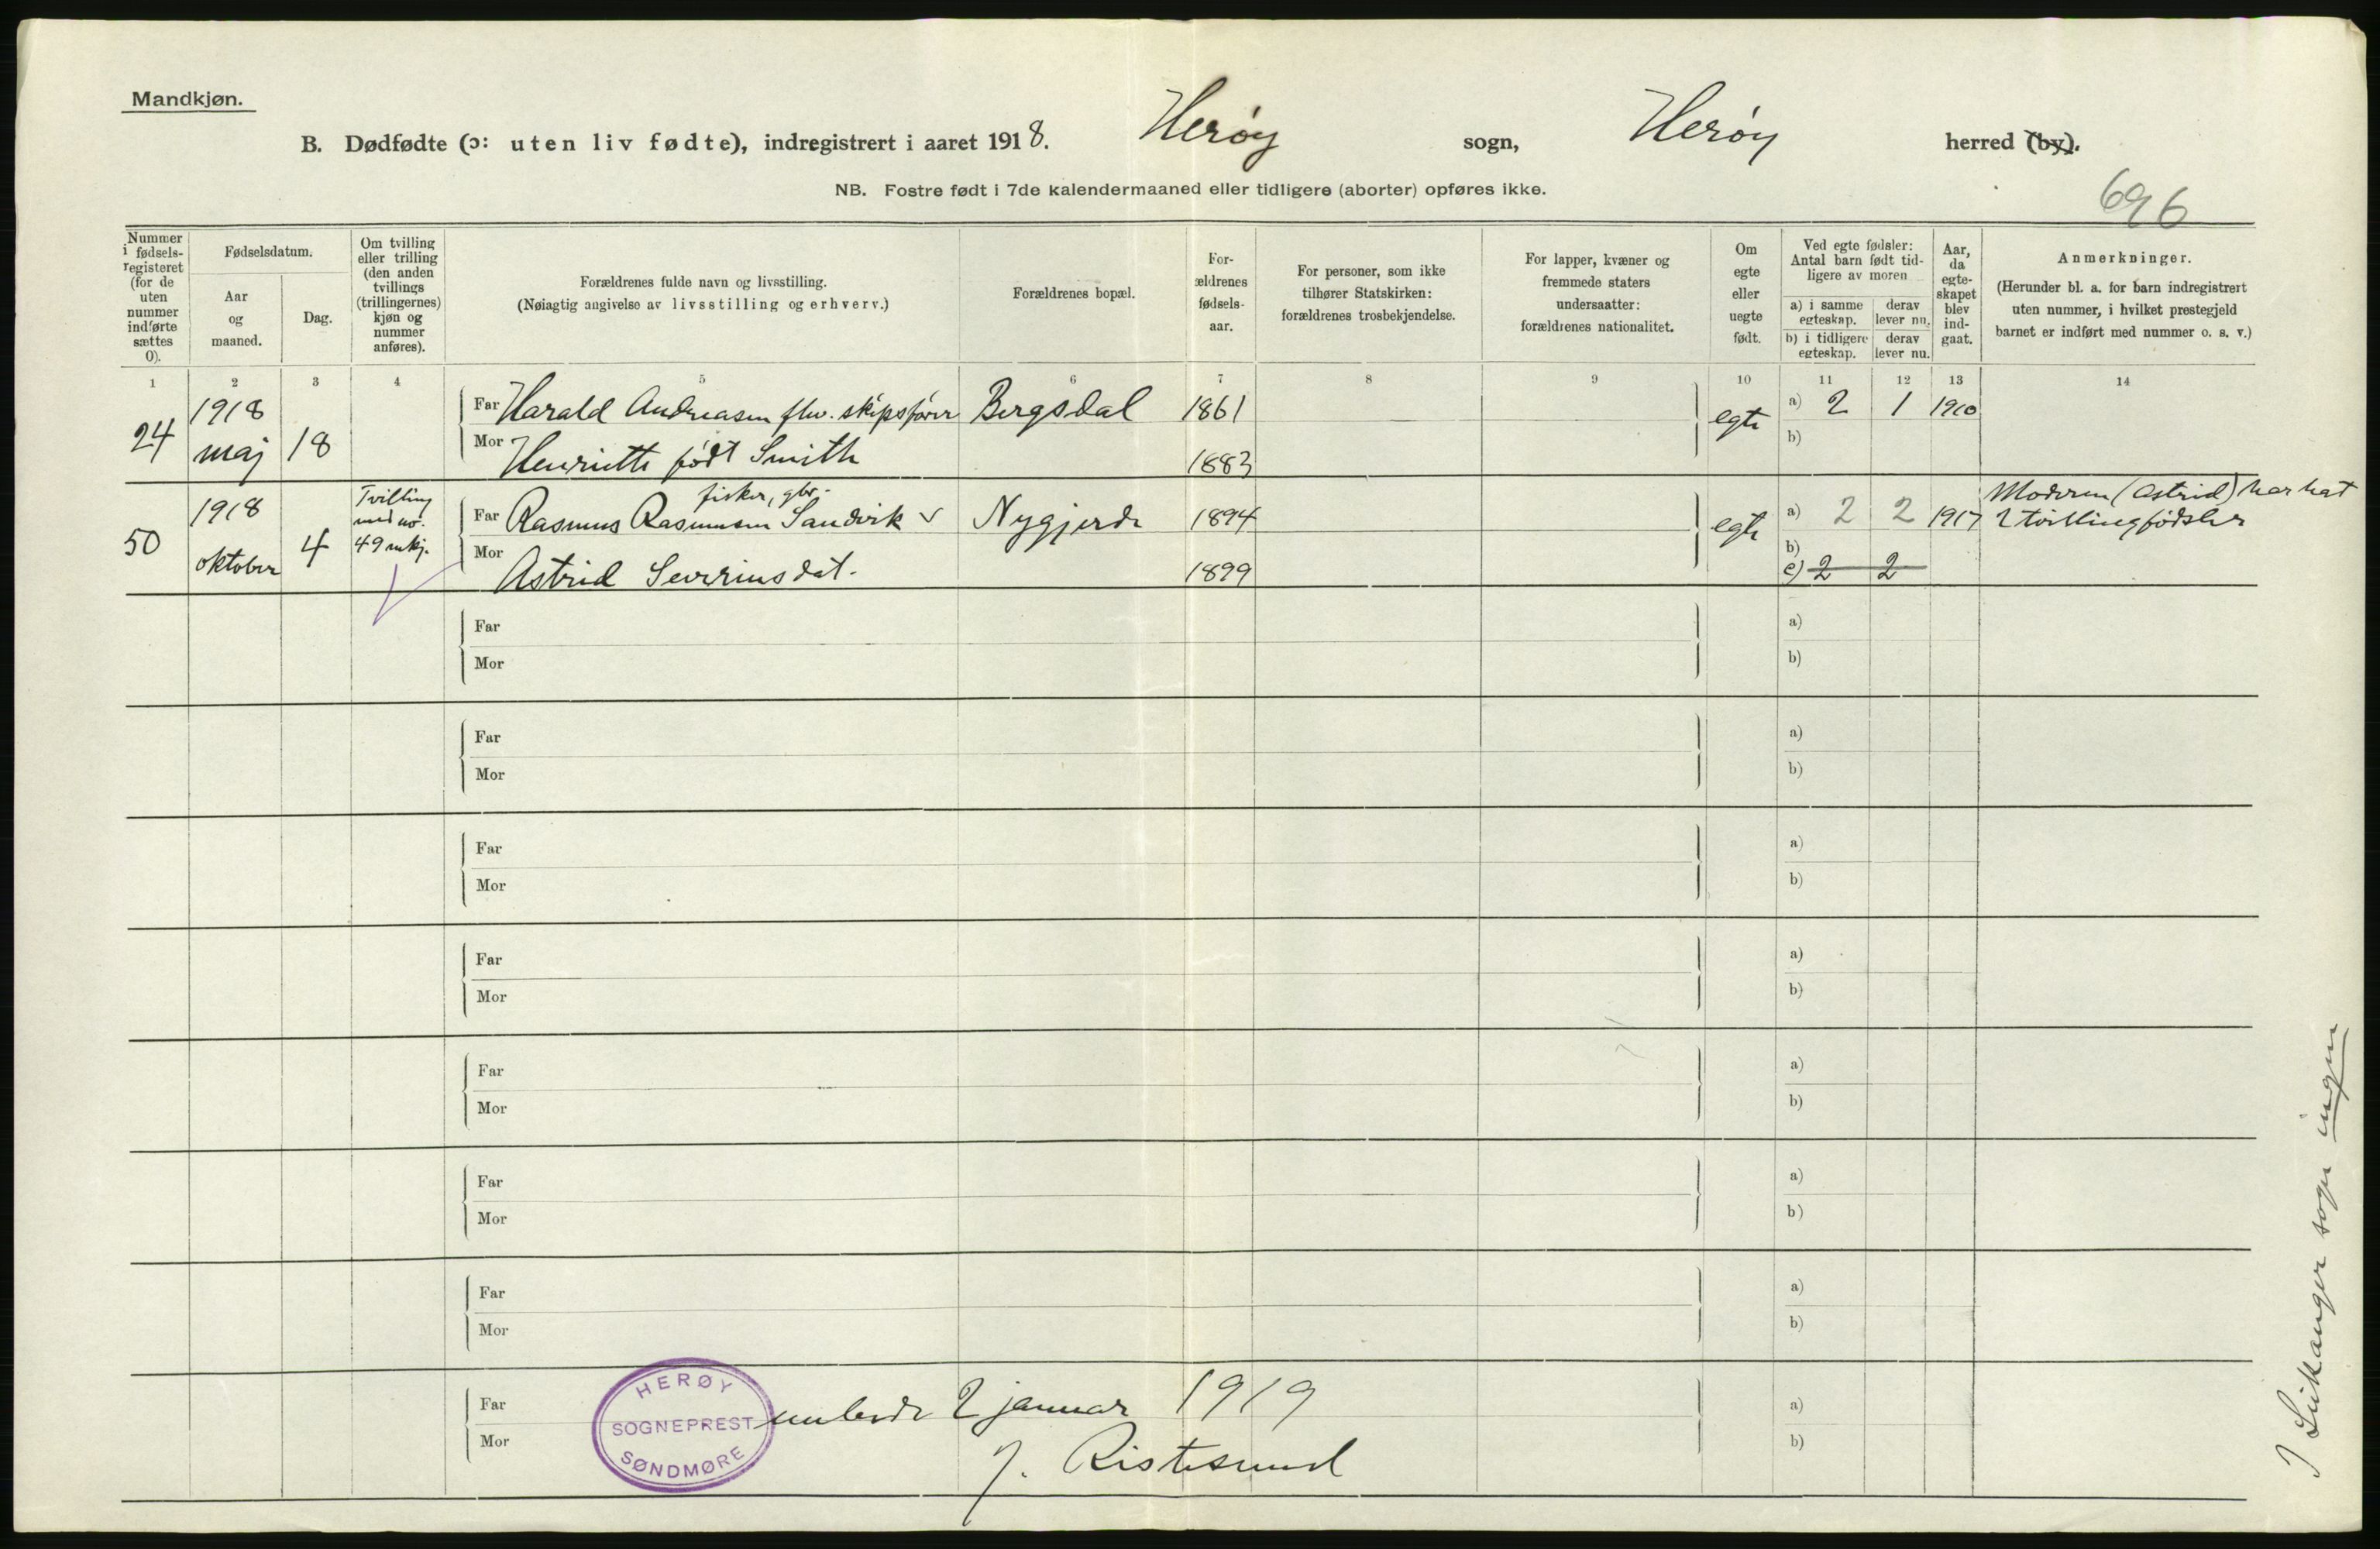 Mandkjøn.
B. Dødfødte (ɔ: uten liv fødte), indregistrert i aaret 1918. Herøy sogn, Herøy herred (by).
NB. Fostre født i 7de kalendermaaned eller tidligere (aborter) opføres ikke.
696
Nummer
i fødsels-
registeret
(for de
uten
nummer
indførte
sættes
0).
Fødselsdatum.
Aar
og
maaned.
Dag.
Om tvilling
eller trilling
(den anden
tvillings
(trillingernes)
kjøn og
nummer
anføres).
Forældrenes fulde navn og livsstilling.
(Nøiagtig angivelse av livsstilling og erhverv.)
Forældrenes bopæl.
For-
ældrenes
fødsels-
aar.
For personer, som ikke
tilhører Statskirken:
forældrenes trosbekjendelse.
For lapper, kvæner og
fremmede staters
undersaatter:
forældrenes nationalitet.
Om
egte
eller
uegte
født.
Ved egte fødsler:
Antal barn født tid-
ligere av moren
a) i samme
egteskap.
derav
lever nu.
b) i tidligere
egteskap.
derav
lever nu.
Aar,
da
egte-
skapet
blev
ind-
gaat.
Anmerkninger.
(Herunder bl. a. for barn indregistrert
uten nummer, i hvilket prestegjeld
barnet er indført med nummer o. s. v.)
1 2 3 4 5 6 7 8 9 10 11 12 13 14
24 1918 maj 18 Far Harald Andreasen fhv. skipsfører Bergsdal 1861 egte a) 2 1 1910
Mor Henriette født Smith 1883 b)
50 1918 oktober 4 Tvilling
med no.
49 mkj.
fisker, gbr.
Far Rasmus Rasmussen Sandvik Nygjerde 1894 egte a) 2 2 1917 Moderen (Astrid) har hat
2 tvillingfødsler
Mor Astrid Severinsdat. 1899 b)
c) 2 2
Far a)
Mor b)
Far a)
Mor b)
Far a)
Mor b)
Far a)
Mor b)
Far a)
Mor b)
Far a)
Mor b)
Far a)
Mor b)
Far a)
Mor b)
HERØY
SOGNEPREST
SØNDMØRE
embede 2 januar 1919
J. Ristesund
I Leikanger sogn ingen